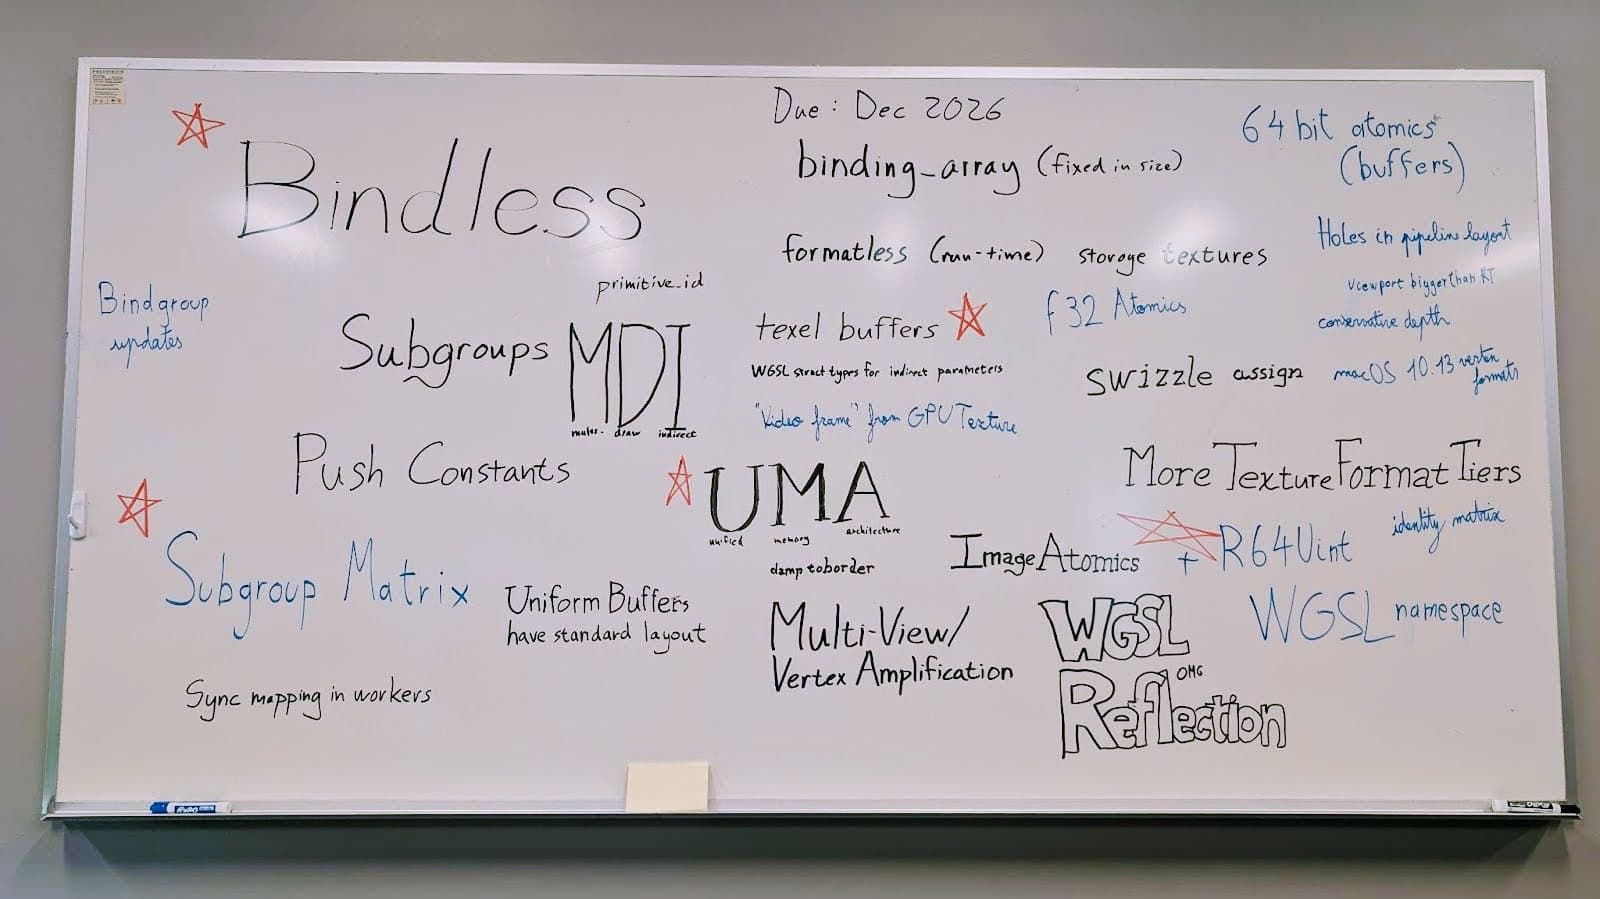 Due: Dec 2026
64 bit atomics
(buffers)
Bindless
binding_array (fixed in size)
formatless (run-time) storage textures
Holes in pipeline layout
viewport bigger than RT
conservative depth
macOS 10.13 vertex
formats
Bindgroup
updates
primitive_id
Subgroups
MDI
multi- draw indirect
texel buffers
f32 Atomics
WGSL struct types for indirect parameters
swizzle assign
"Video frame" from GPUTexture
Push Constants
UMA
unified memory architecture
More Texture Format Tiers
identity matrix
Subgroup Matrix
clamp to border
Image Atomics + R64Uint
Uniform Buffers
have standard layout
Multi-View/
Vertex Amplification
WGSL
OMG
Reflection
WGSL namespace
Sync mapping in workers
EXPO